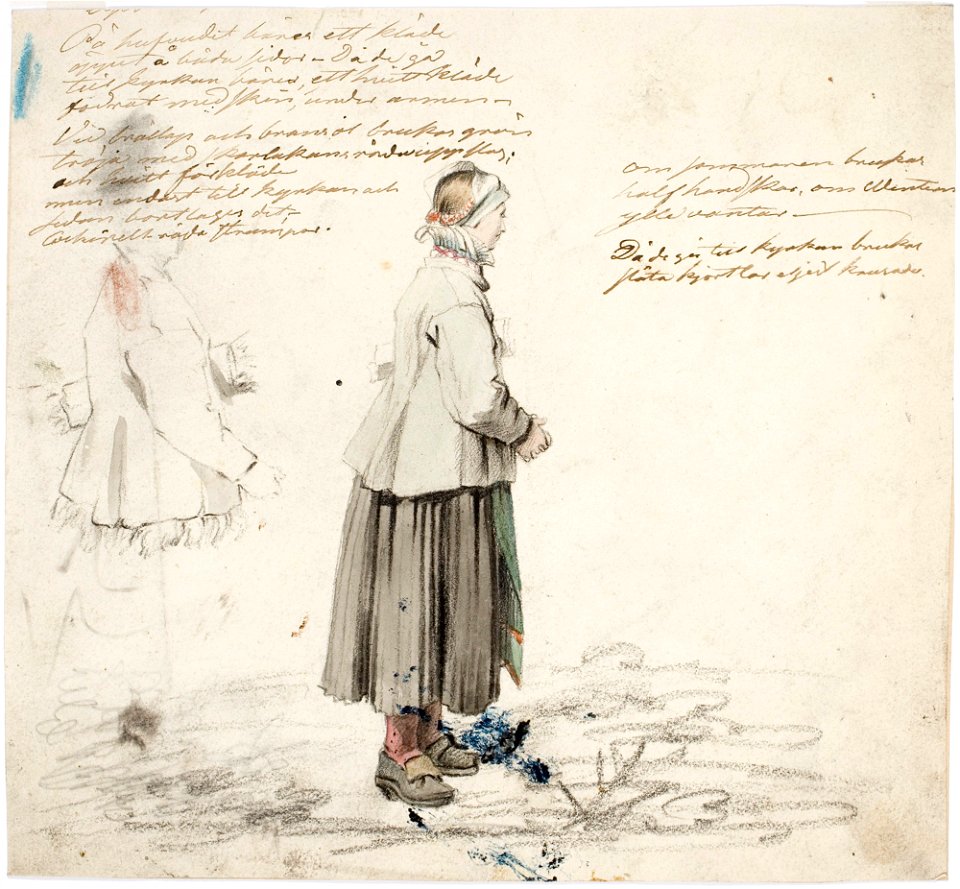 På hufvudit bäres ett kläde
öppet å båda sidor – Då de gå
till kyrkan bäres, ett hvitt kläde
fodrat med skin, under armen –
Vid bröllop och brudsöl brukas grön
tröja med skarlakansröda uppslag;
och hvitt förkläde
men endast till kyrkan och
sedan borttages det;–
Cochinell-röda strumpor.
om sommaren brukas
half handskar, om Wintern
ylle vantar –
Då de gå till kyrkan brukas
släta kjortlar ejest krusade.